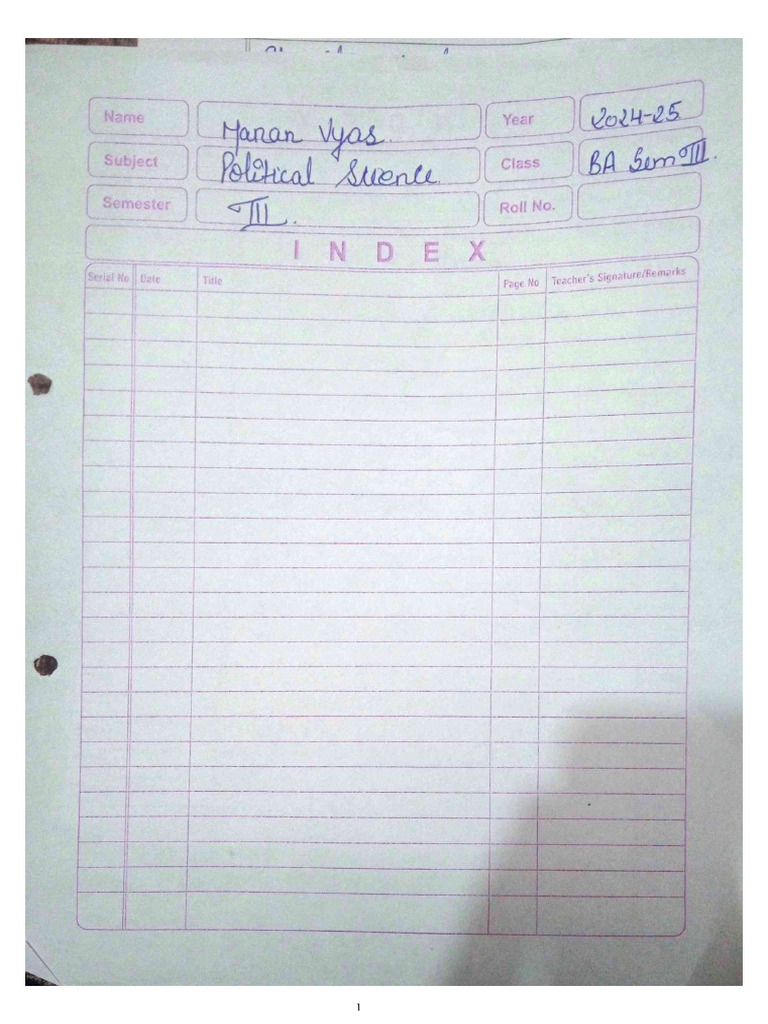 Name Manan Vyas. Year 2024-25
Subject Political Science. Class BA Sem III.
Semester III. Roll No.
INDEX
Serial No Date Title Page No Teacher's Signature/Remarks
1